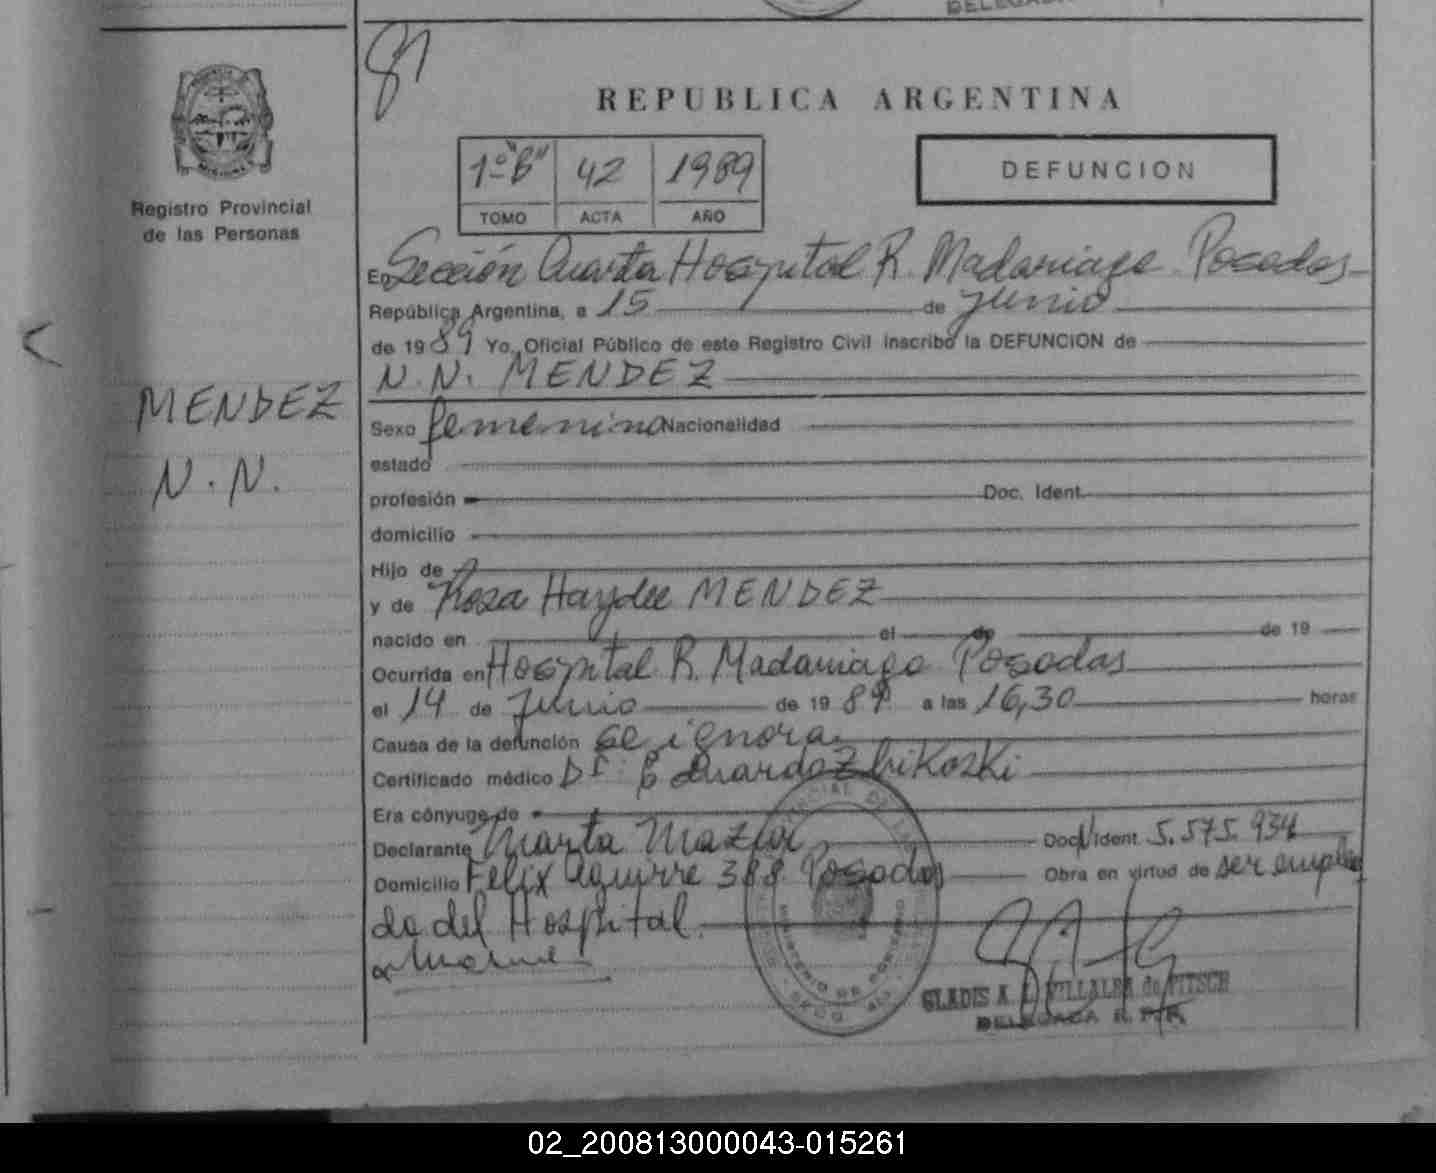 81
REPUBLICA ARGENTINA
1º "B" 42 1989
TOMO ACTA AÑO
DEFUNCION
Registro Provincial
de las Personas
MENDEZ
N.N.
En Sección Cuarta Hospital R. Madariaga Posadas
República Argentina, a 15 de junio
de 1989 Yo, Oficial Público de este Registro Civil inscribo la DEFUNCION de
N.N. MENDEZ
Sexo femenino Nacionalidad
estado
profesión Doc. Ident.
domicilio
Hijo de
y de Rosa Haydee MENDEZ
nacido en el de de 19
Ocurrida en Hospital R. Madariaga Posadas
el 14 de Junio de 1989 a las 16,30 horas
Causa de la defunción se ignora
Certificado médico Dr. Eduardo
Era cónyuge de
Declarante Marta Doc. Ident. 5.575.934
Domicilio Felix Aguirre 388 Posadas Obra en virtud de ser emplea
da del Hospital.
GLADIS A. VILLALBA de PITSCH
DELEGADA R. P. P.
02_200813000043-015261